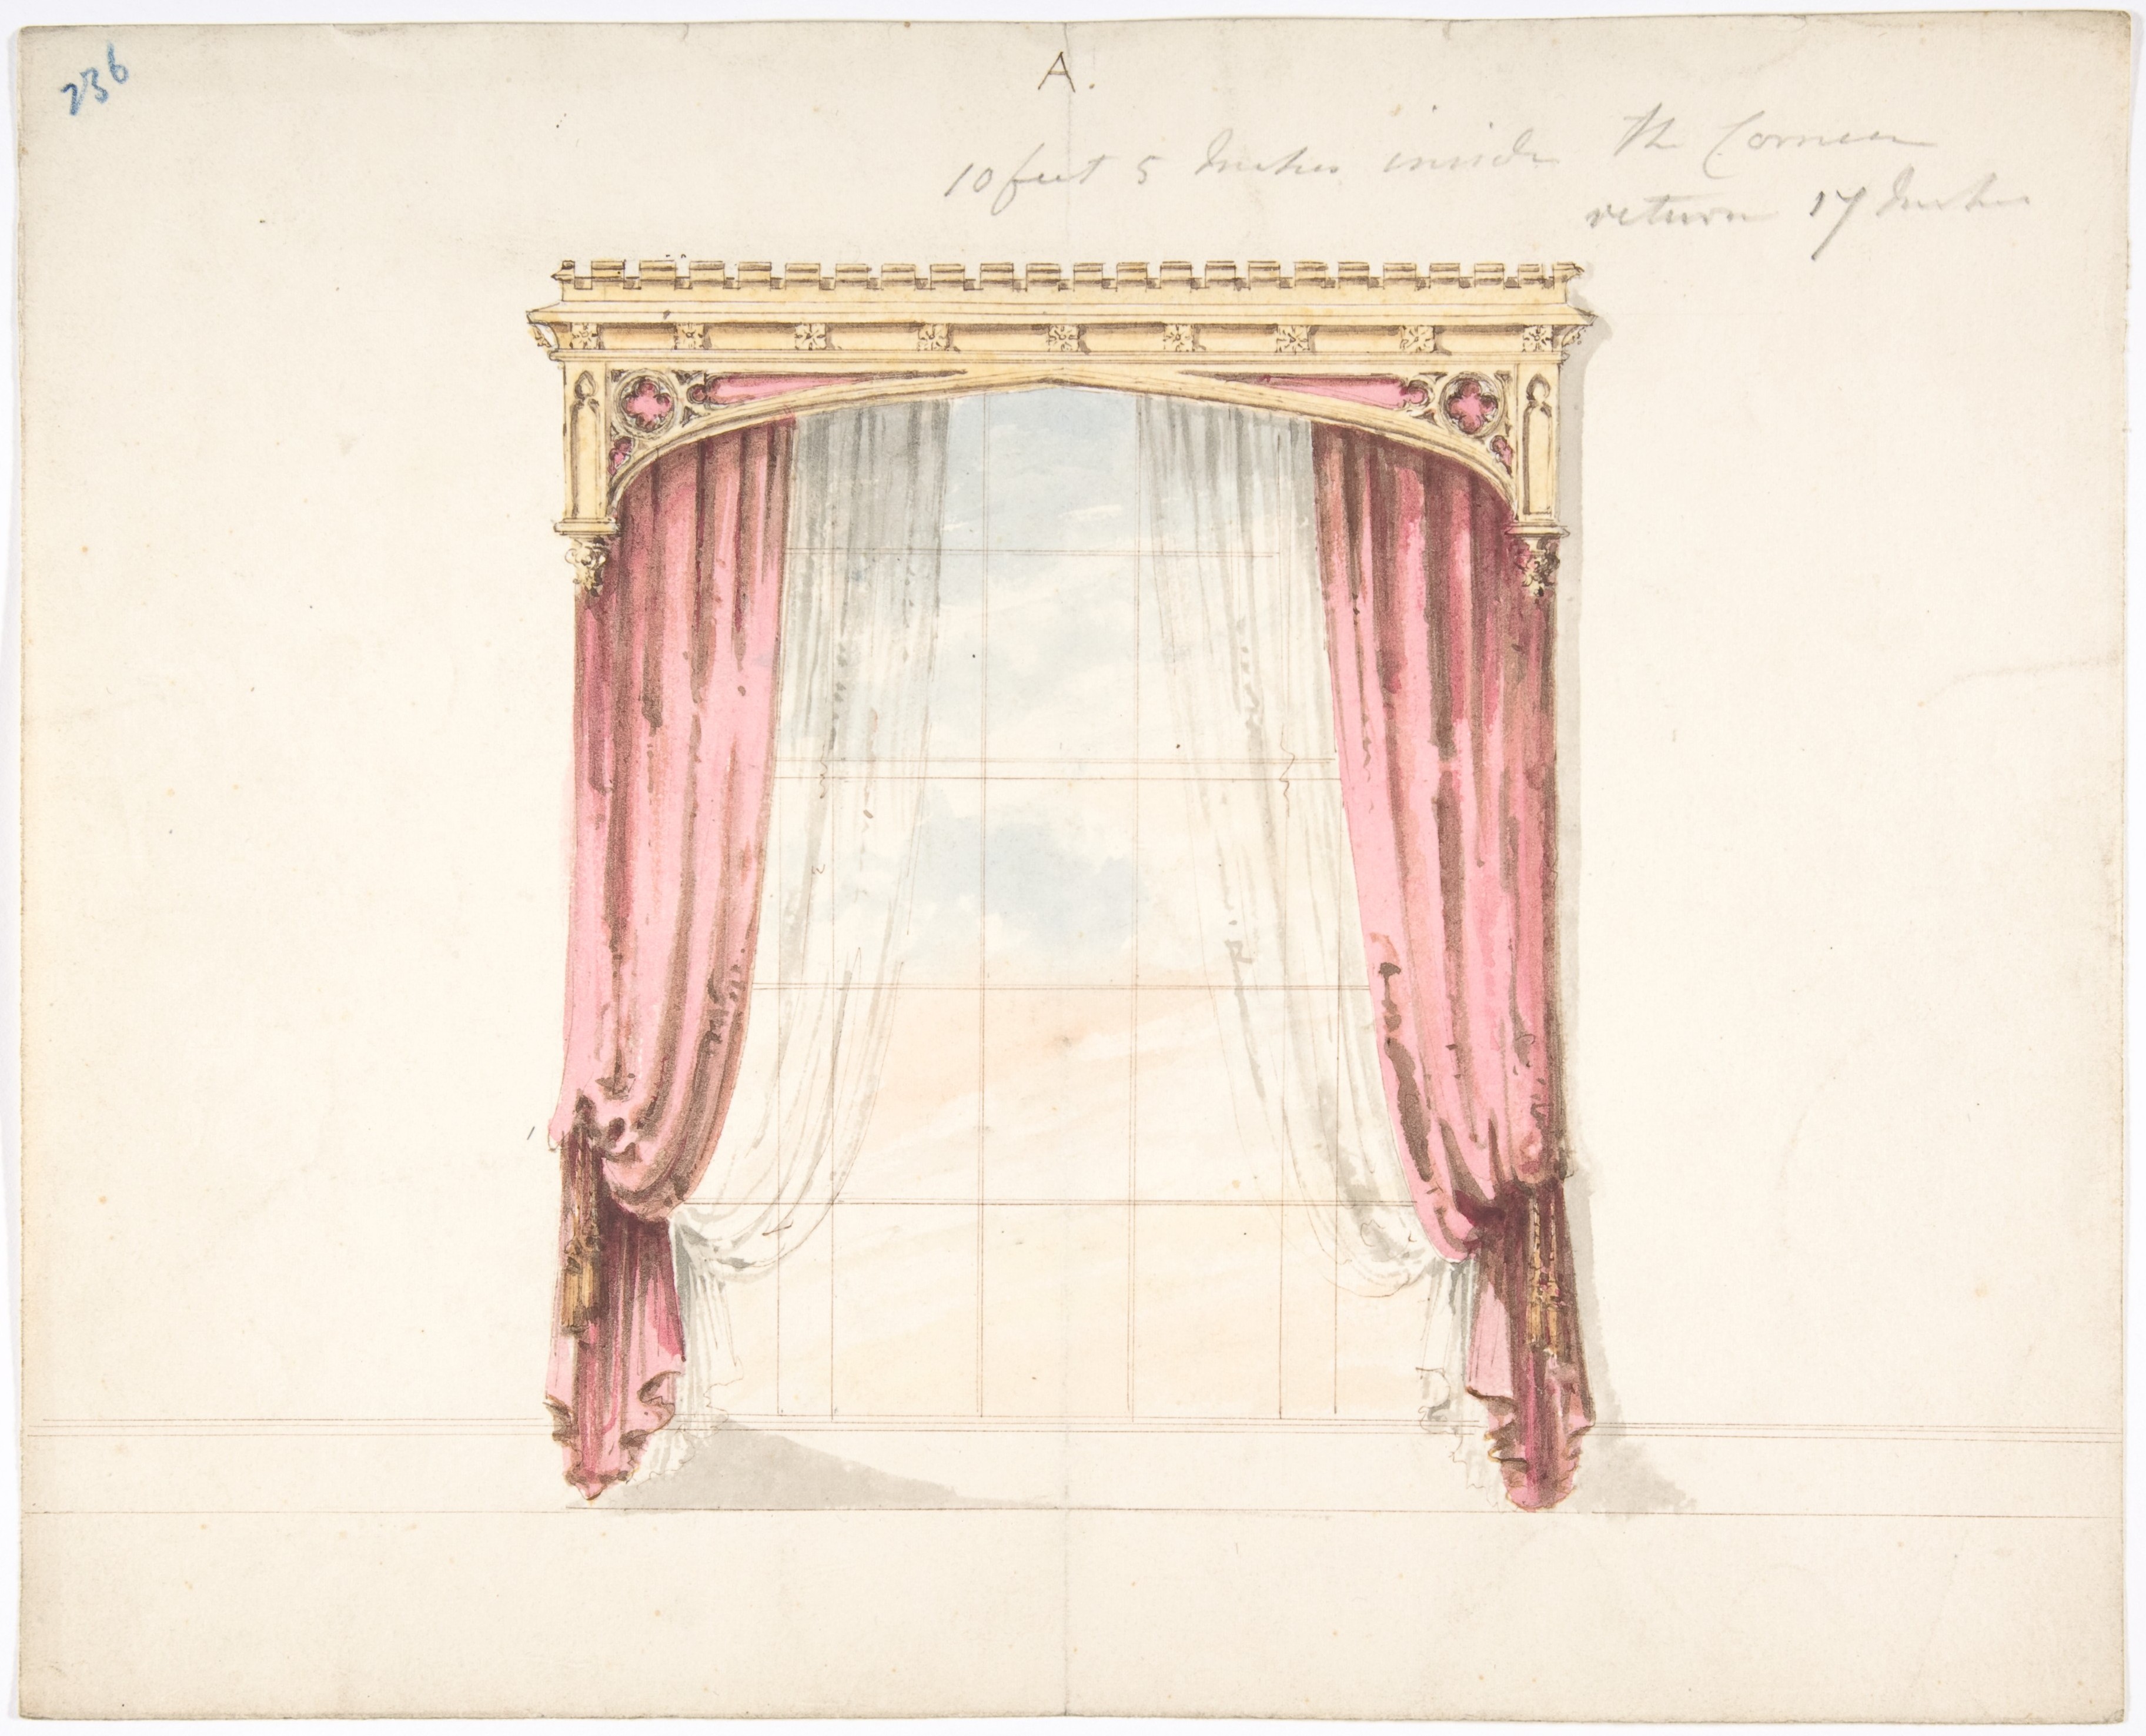 236
A.
10 feet 5 Inches inside the Cornice
return 17 Inches